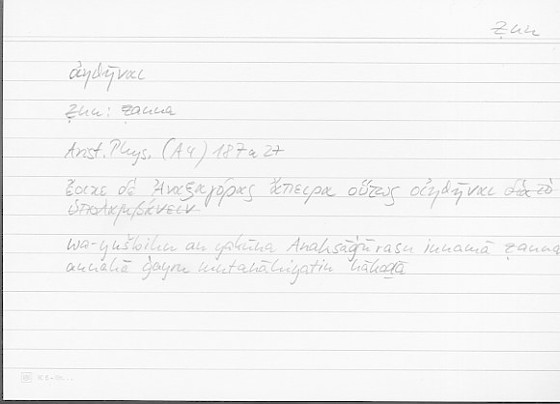 ẓnn
οἰηθῆναι
ẓnn: ẓanna
Arist. Phys. (A 4) 187a 27
ἔοικε δὲ Ἀναξαγόρας ἄπειρα οὕτως οἰηθῆναι διὰ τὸ
ὑπολαμβάνειν
wa-yušbihu an yakūna Anaksāġūrasu innamā ẓanna
annahā ġayru mutanāhiyatin hākaḏā